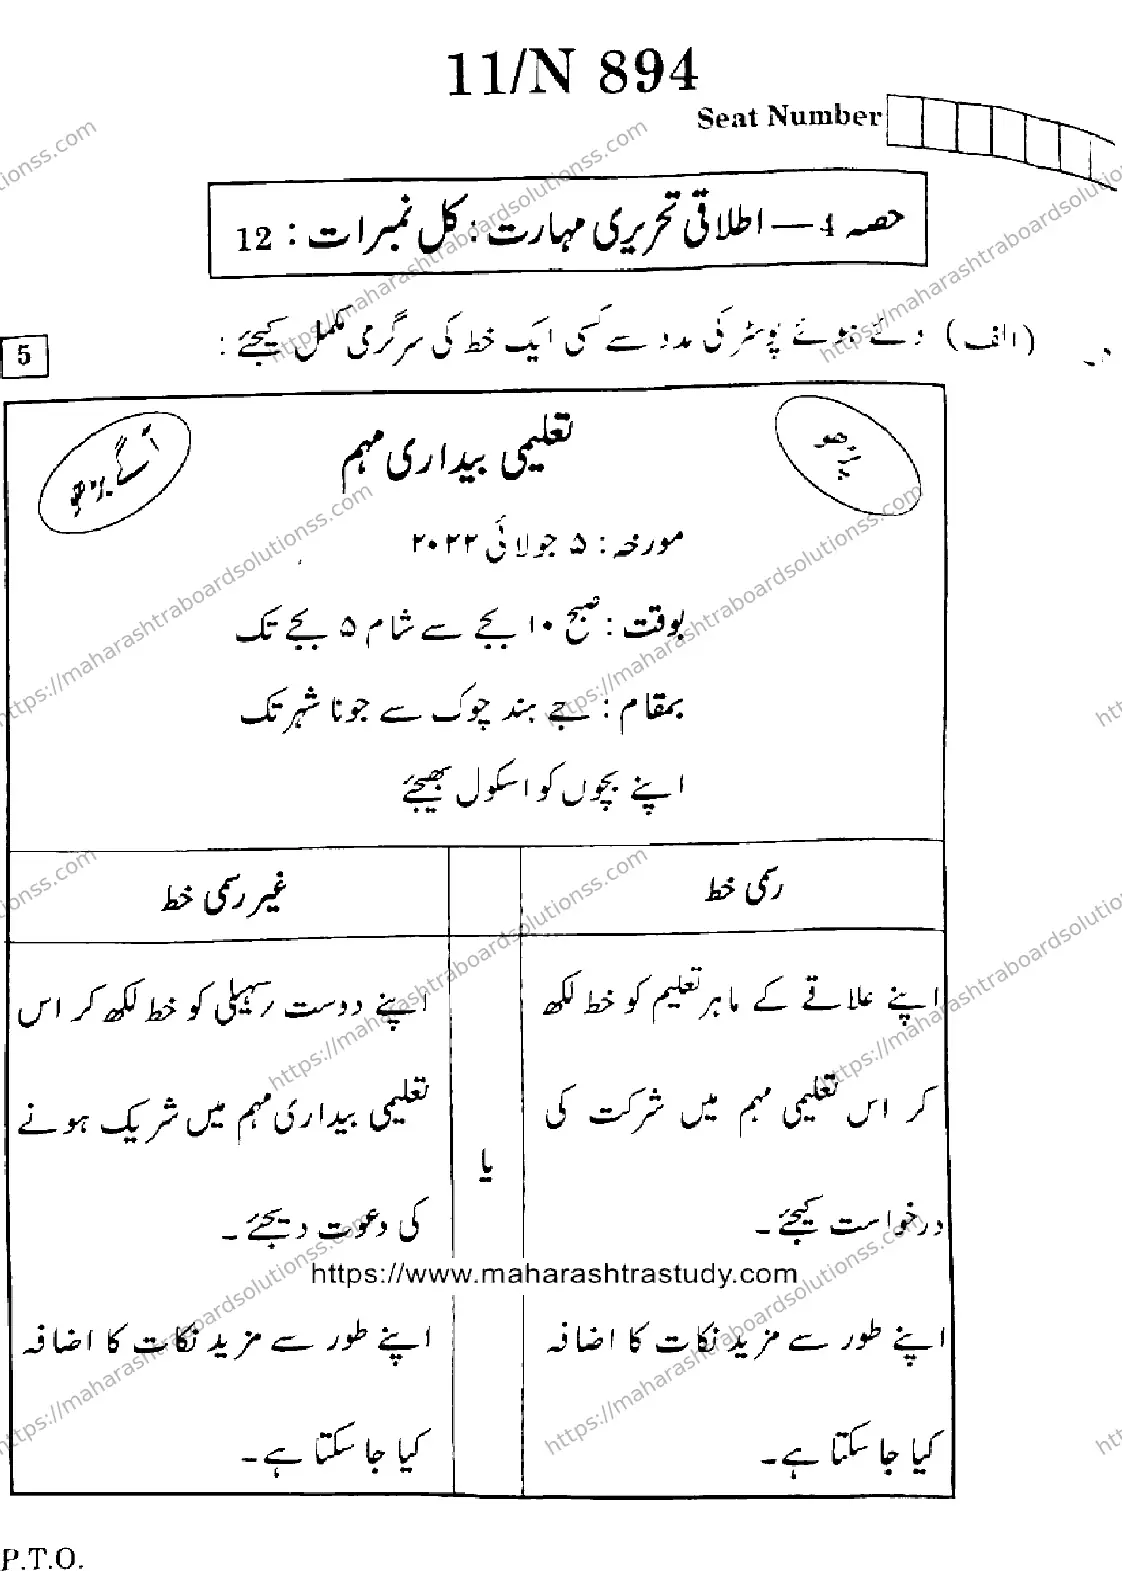 11/N 894
Seat Number
حصہ 4 — اطلاقی تحریری مہارت : کل نمبرات : 12
(الف) دئے ہوئے پوسٹر کی مدد سے کسی ایک خط کی سرگرمی مکمل کیجئے :
5
پڑھو
آگے بڑھو
تعلیمی بیداری مہم
مورخہ : ۵ جولائی ۲۰۲۲
بوقت : صبح ۱۰ بجے سے شام ۵ بجے تک
بمقام : جے ہند چوک سے جونا شہر تک
اپنے بچوں کو اسکول بھیجئے
رسمی خط
اپنے علاقے کے ماہر تعلیم کو خط لکھ
کر اس تعلیمی مہم میں شرکت کی
درخواست کیجئے۔
اپنے طور سے مزید نکات کا اضافہ
کیا جا سکتا ہے۔
یا
غیر رسمی خط
اپنے دوست رسہیلی کو خط لکھ کر اس
تعلیمی بیداری مہم میں شریک ہونے
کی دعوت دیجئے۔
اپنے طور سے مزید نکات کا اضافہ
کیا جا سکتا ہے۔
https://www.maharashtrastudy.com
P.T.O.
https://maharashtraboardsolutionss.com